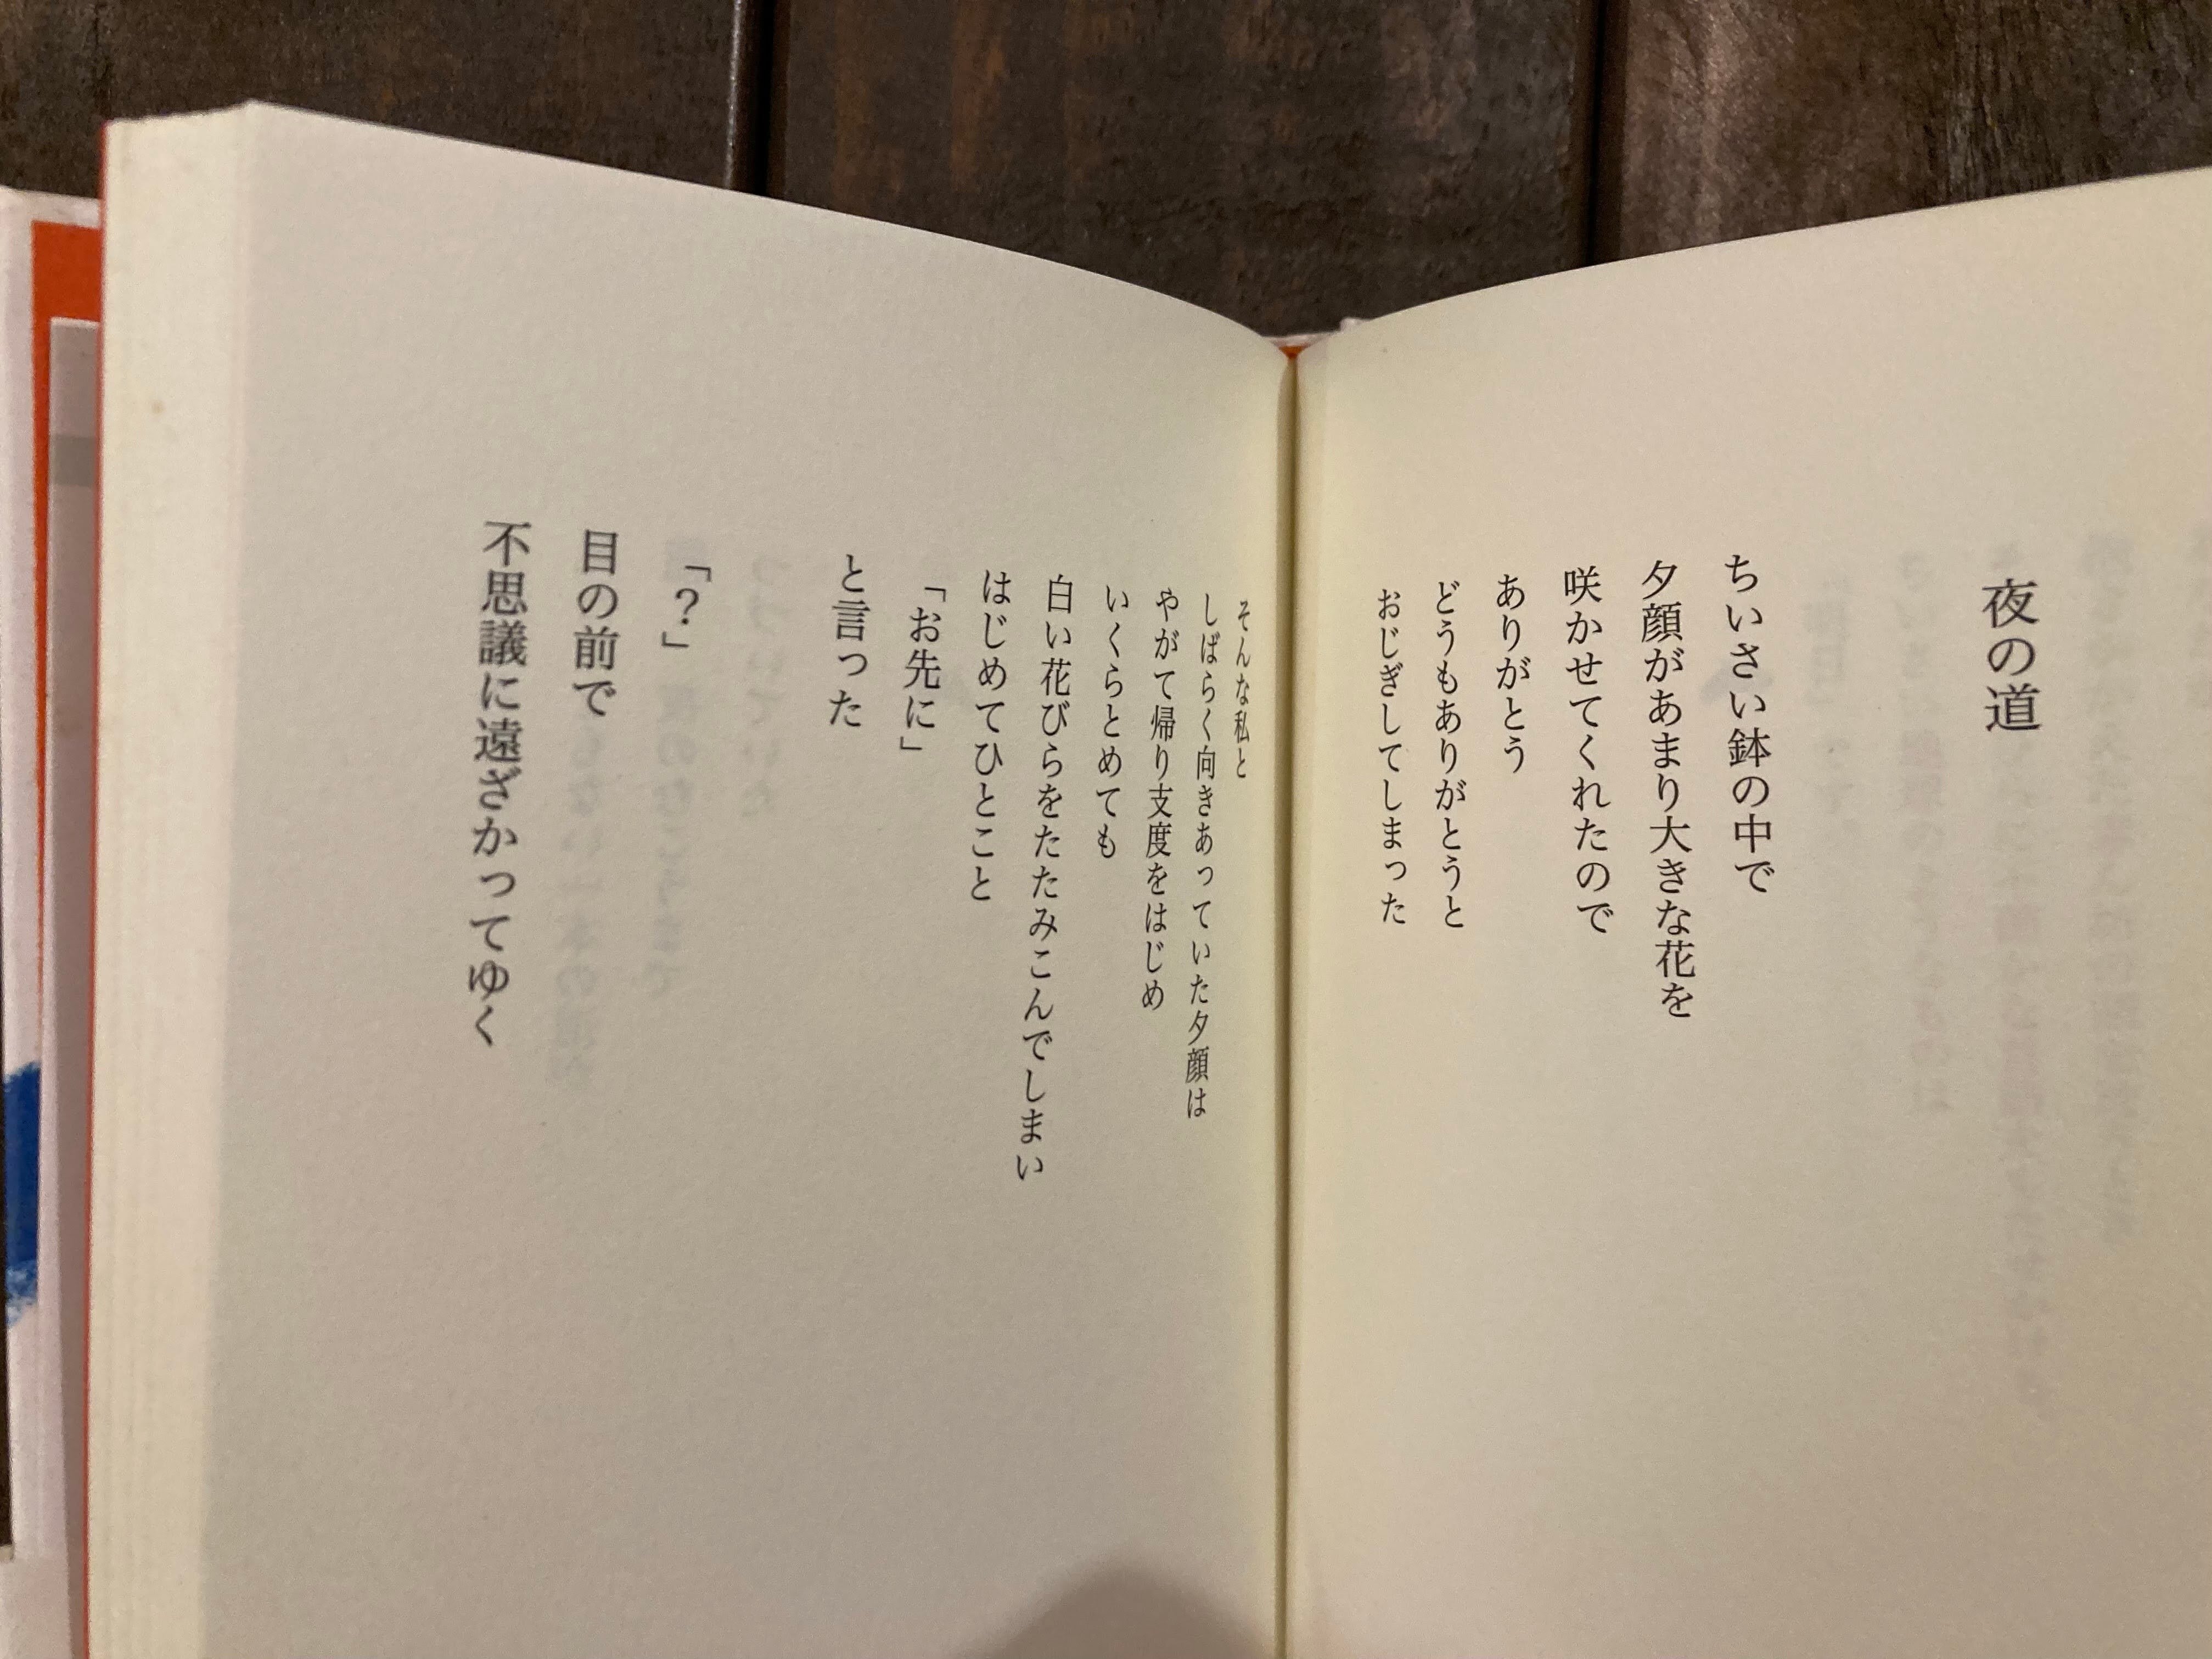 夜の道
ちいさい鉢の中で
夕顔があまり大きな花を
咲かせてくれたので
ありがとう
どうもありがとうと
おじぎしてしまった
そんな私と
しばらく向きあっていた夕顔は
やがて帰り支度をはじめ
いくらとめても
白い花びらをたたみこんでしまい
はじめてひとこと
「お先に」
と言った
「？」
目の前で
不思議に遠ざかってゆく